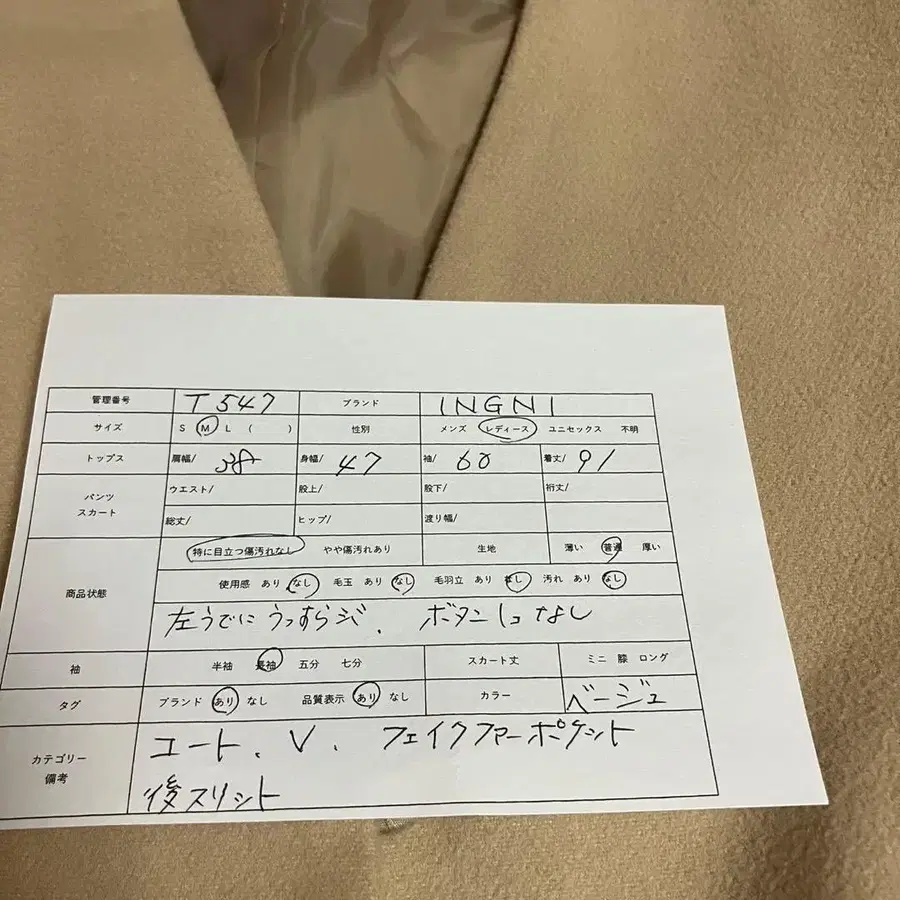 管理番号 T547 ブランド INGNI
サイズ S M L ( ) 性別 メンズ レディース ユニセックス 不明
トップス 肩幅/ 38 身幅/ 47 袖/ 60 着丈/ 91
パンツ スカート ウエスト/ 股上/ 股下/ 裄丈/
総丈/ ヒップ/ 渡り幅/
商品状態 特に目立つ傷汚れなし やや傷汚れあり 生地 薄い 普通 厚い
使用感 あり なし 毛玉 あり なし 毛羽立 あり なし 汚れ あり なし
左うでにうっすらジ、ボタン1コなし
袖 半袖 長袖 五分 七分 スカート丈 ミニ 膝 ロング
タグ ブランド あり なし 品質表示 あり なし カラー ベージュ
カテゴリー 備考 コート、V、フェイクファーポケット
後スリット